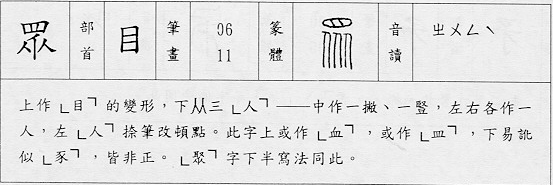 眾 部首 目 筆畫 06 11 篆體 音讀 ㄓㄨㄥˋ
上作「目」的變形，下从三「人」——中作一撇、一豎，左右各作一
人，左「人」捺筆改頓點。此字上或作「血」，或作「皿」，下易訛
似「豕」，皆非正。「聚」字下半寫法同此。